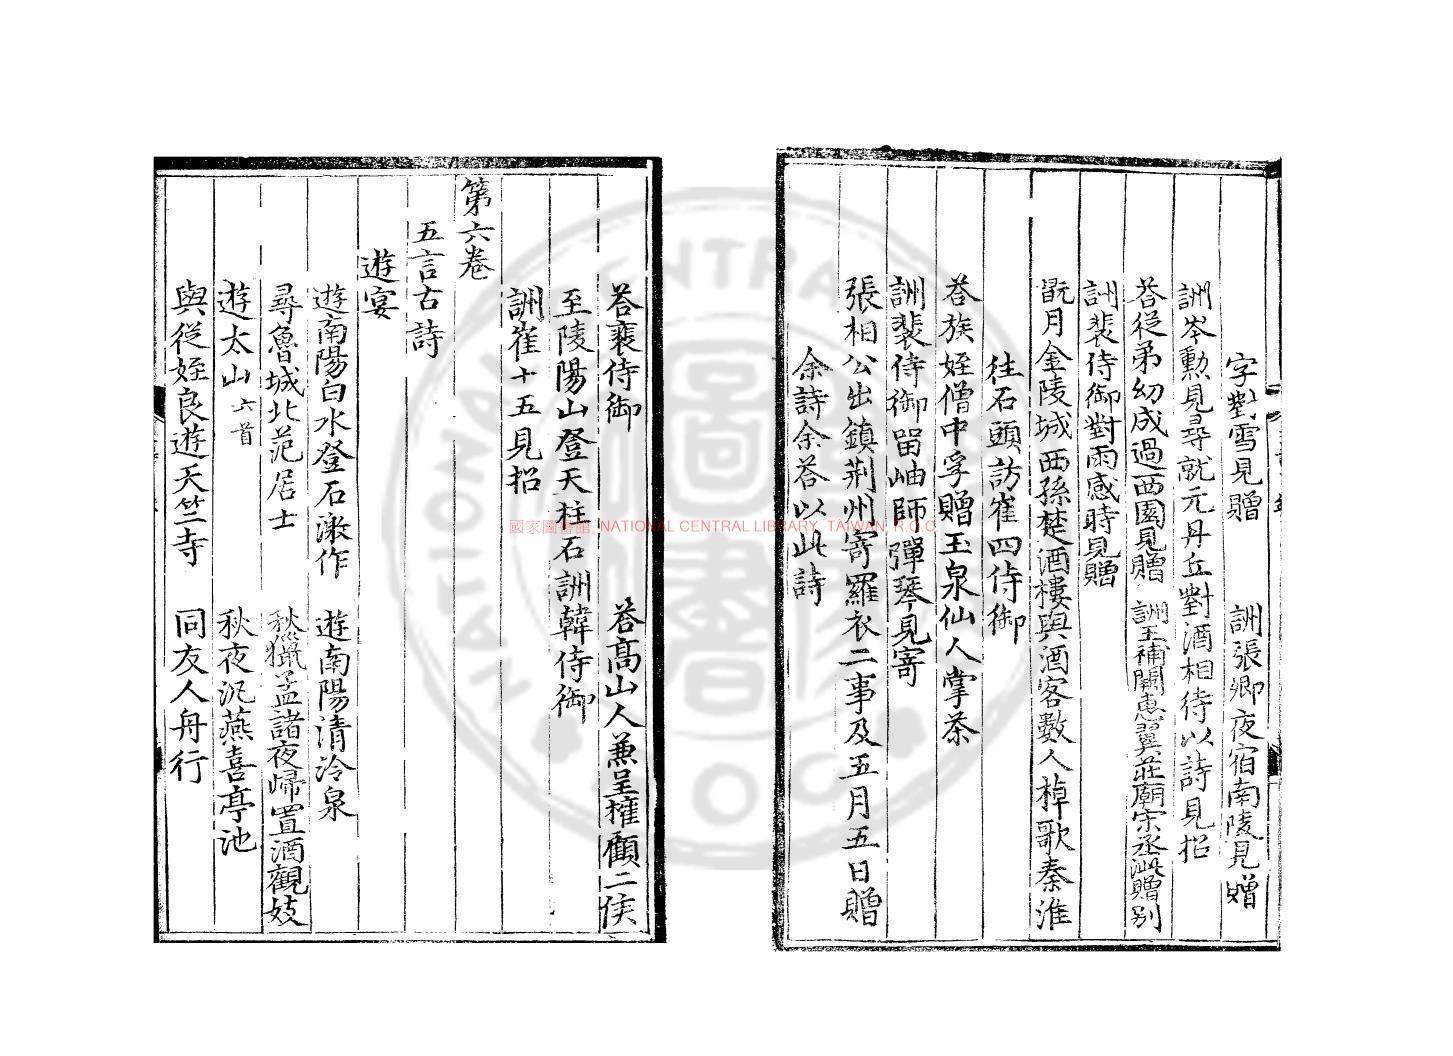 字對雪見贈　詶張卿夜宿南陵見贈
詶岑勳見尋就元丹丘對酒相待以詩見招
荅從弟幼成過西園見贈　詶王補闕惠翼莊廟宋丞泚贈别
詶裴侍御對雨感時見贈
翫月金陵城西孫楚酒樓與酒客數人棹歌秦淮
往石頭訪崔四侍御
荅族姪僧中孚贈玉泉仙人掌茶
詶裴侍御留岫師彈琴見寄
張相公出鎮荆州寄羅衣二事及五月五日贈
余詩余荅以此詩
荅裴侍御　荅高山人兼呈權顧二侯
至陵陽山登天柱石詶韓侍御
詶崔十五見招
第六卷
五言古詩
遊宴
遊南陽白水登石激作　遊南陽清泠泉
尋魯城北范居士　秋獵孟諸夜歸置酒觀妓
遊太山六首　秋夜汎燕喜亭池
與從姪良遊天竺寺　同友人舟行
國家圖書館, NATIONAL CENTRAL LIBRARY, TAIWAN, R.O.C